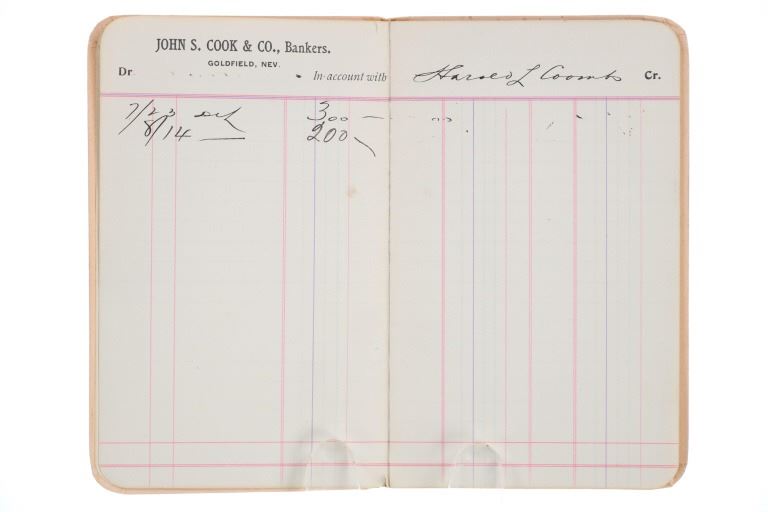 JOHN S. COOK & CO., Bankers.
GOLDFIELD, NEV.
Dr. In account with Harold L Coombs Cr.
7/23 Dep 300 —
8/14 — 200 —